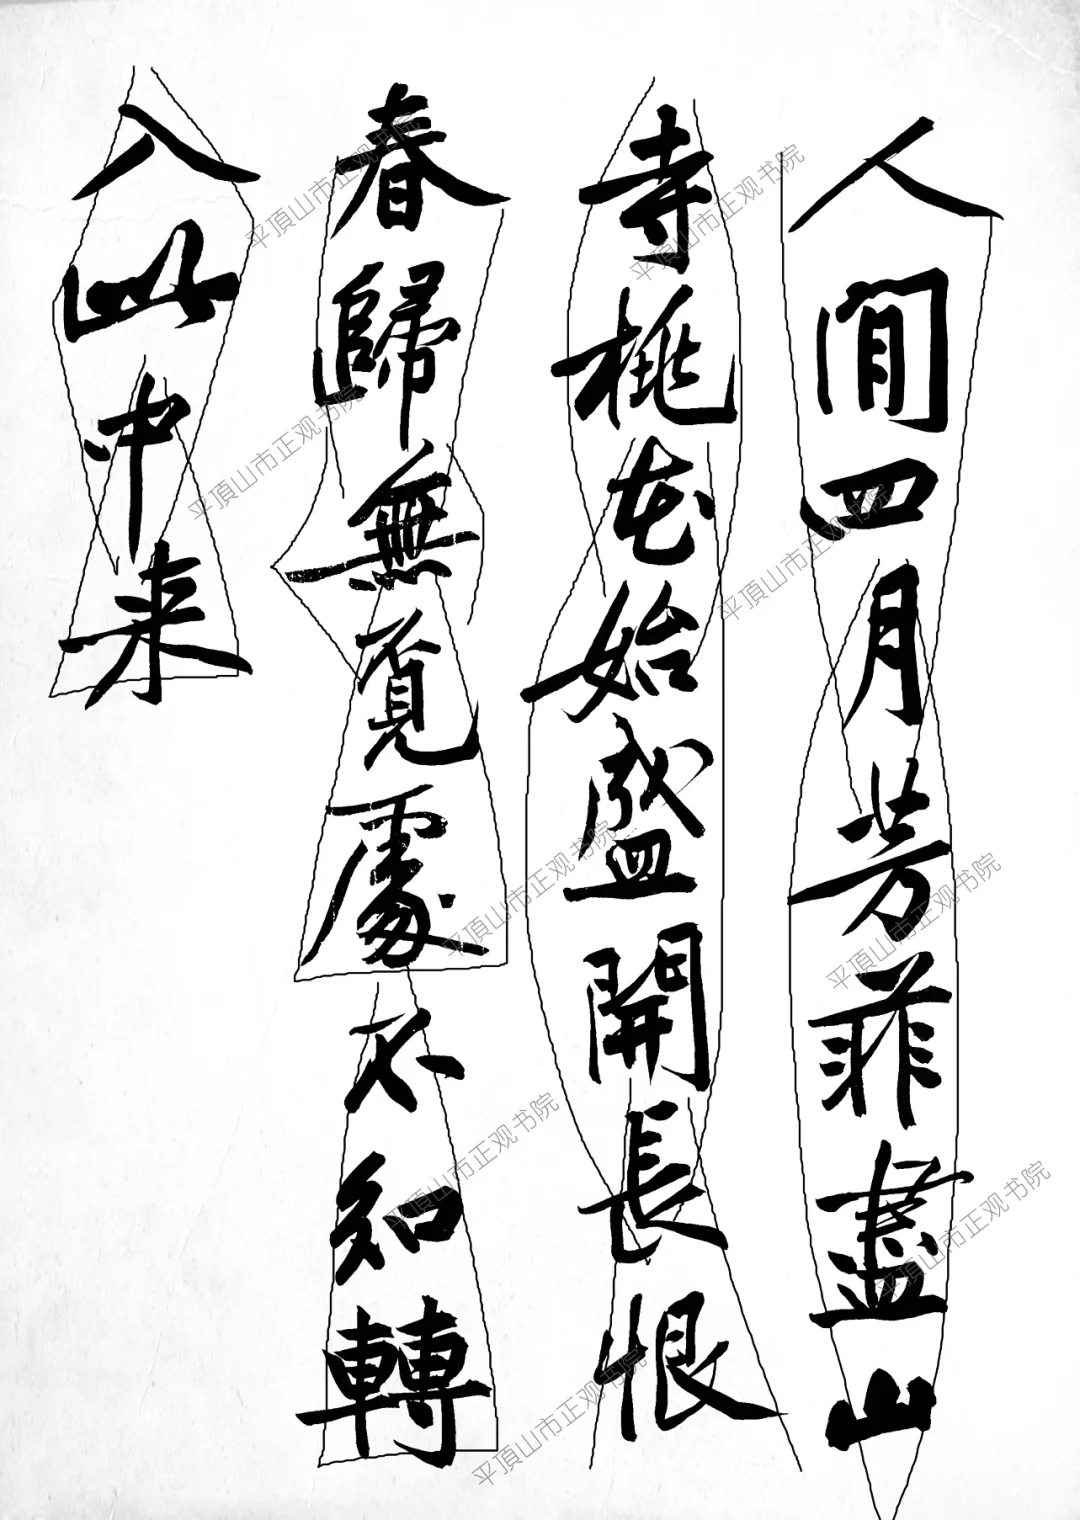 人閒四月芳菲盡山
寺桃花始盛開長恨
春歸無覓處不知轉
入此中来
平頂山市正观书院
平頂山市正观书院
平頂山市正观书院
平頂山市正观书院
平頂山市正观书院
平頂山市正观书院
平頂山市正观书院
平頂山市正观书院
平頂山市正观书院